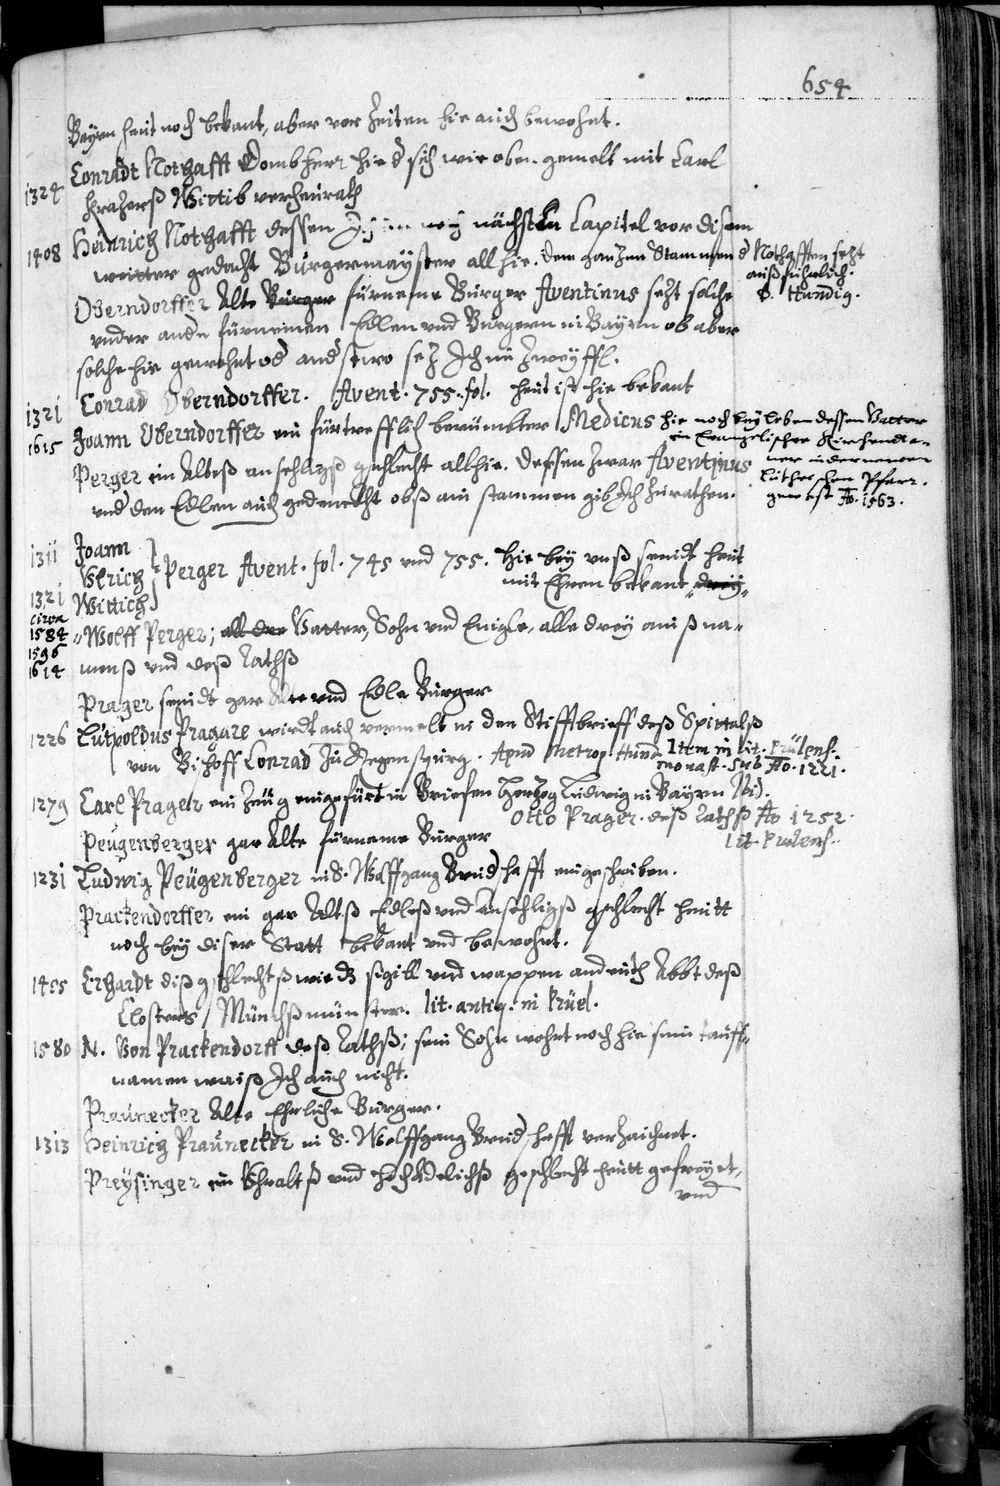 654
Bayrn heut noch bekant, aber vor Zeiten hie auch bewohnt.
1324 Conradt Nothafft Dombherr hie d sich wie oben gemelt mit Carl
Wittib verheurath
1408 Heinrich Nothafft dessen nächsten Capitel vor disem
weitter gedacht Burgermayster all hie. Den ganzen Stammen d Nothafften sezt
außführlich.
D. Hundig.
Oberndorffer Alte Burger fürneme Burger Aventinus sezt solche
under ande fürnemen Edlen und Burgern in Bayrn ob aber
solche hie gewohnt od andstwo sez Ich in Zweyffl.
1321 Conrad Oberndorffer. Avent. 755. fol. heut ist hie bekant
1615 Joann Oberndorffer ein fürtrefflich berümbter Medicus hie noch bey leben dessen Vatter
ein Evangelischer Kirchendie-
ner in der neuen
Lutherschen Pfarr.
gewest Ao. 1563.
Perger ein Alteß ansehligß gschlecht allhie. Dessen zwar Aventinus
und den Edlen auch gedenckht obß ain stammen gib Ich zurathen.
1311 Joann
Ulrich Perger Avent. fol. 745 und 755. Hie bey unß seindt heut
1321 Wittich mit Ehren bekant drey
circa
1584 Wolff Perger; all drey Vatter, Sohn und Enigle, alle drey ainß na-
1596
1614 menß und deß Rathß
Prager seindt gar Alte und Edle Burger
1226 Lütpoldus Pragare wirdt auch vermelt in den Stifftbrieff deß Spittalß
von Bischoff Conrad zu Regenspurg. Apud Metrop. Hund. Item in lit. Prülens.
monast. sub Ao. 1221.
1279 Carl Prager ein Zeug eingefürt in Briefen Herzog Ludwig in Bayrn Ibid.
Otto Prager. deß Rathß Ao 1252.
lit. Prulens.
Peugenberger gar Alte fürneme Burger
1231 Ludwig Peügenberger in S. Wolffgang Brudschafft eingeschriben.
Prackendorffer ein gar Altß Edleß und Ansehligß gschlecht heutt
noch bey diser Statt bekant und bewohnt.
1455 Erhardt diß gschlechtß wie dz sigill und wappen andeut Abbt deß
Closters Münchßmünster. lit. antiq. in Prüel.
1580 N. Von Prackendorff deß Rathß; sein Sohn wohnt noch hie sein tauff-
namen waiß Ich auch nicht.
Praunecker Alte Ehrliche Burger.
1313 Heinrich Praünecker in S. Wolffgang Brudschafft verzaichnet.
Preysinger ein Uhraltß und Hochadelichß geschlecht heutt gefreyet,
und